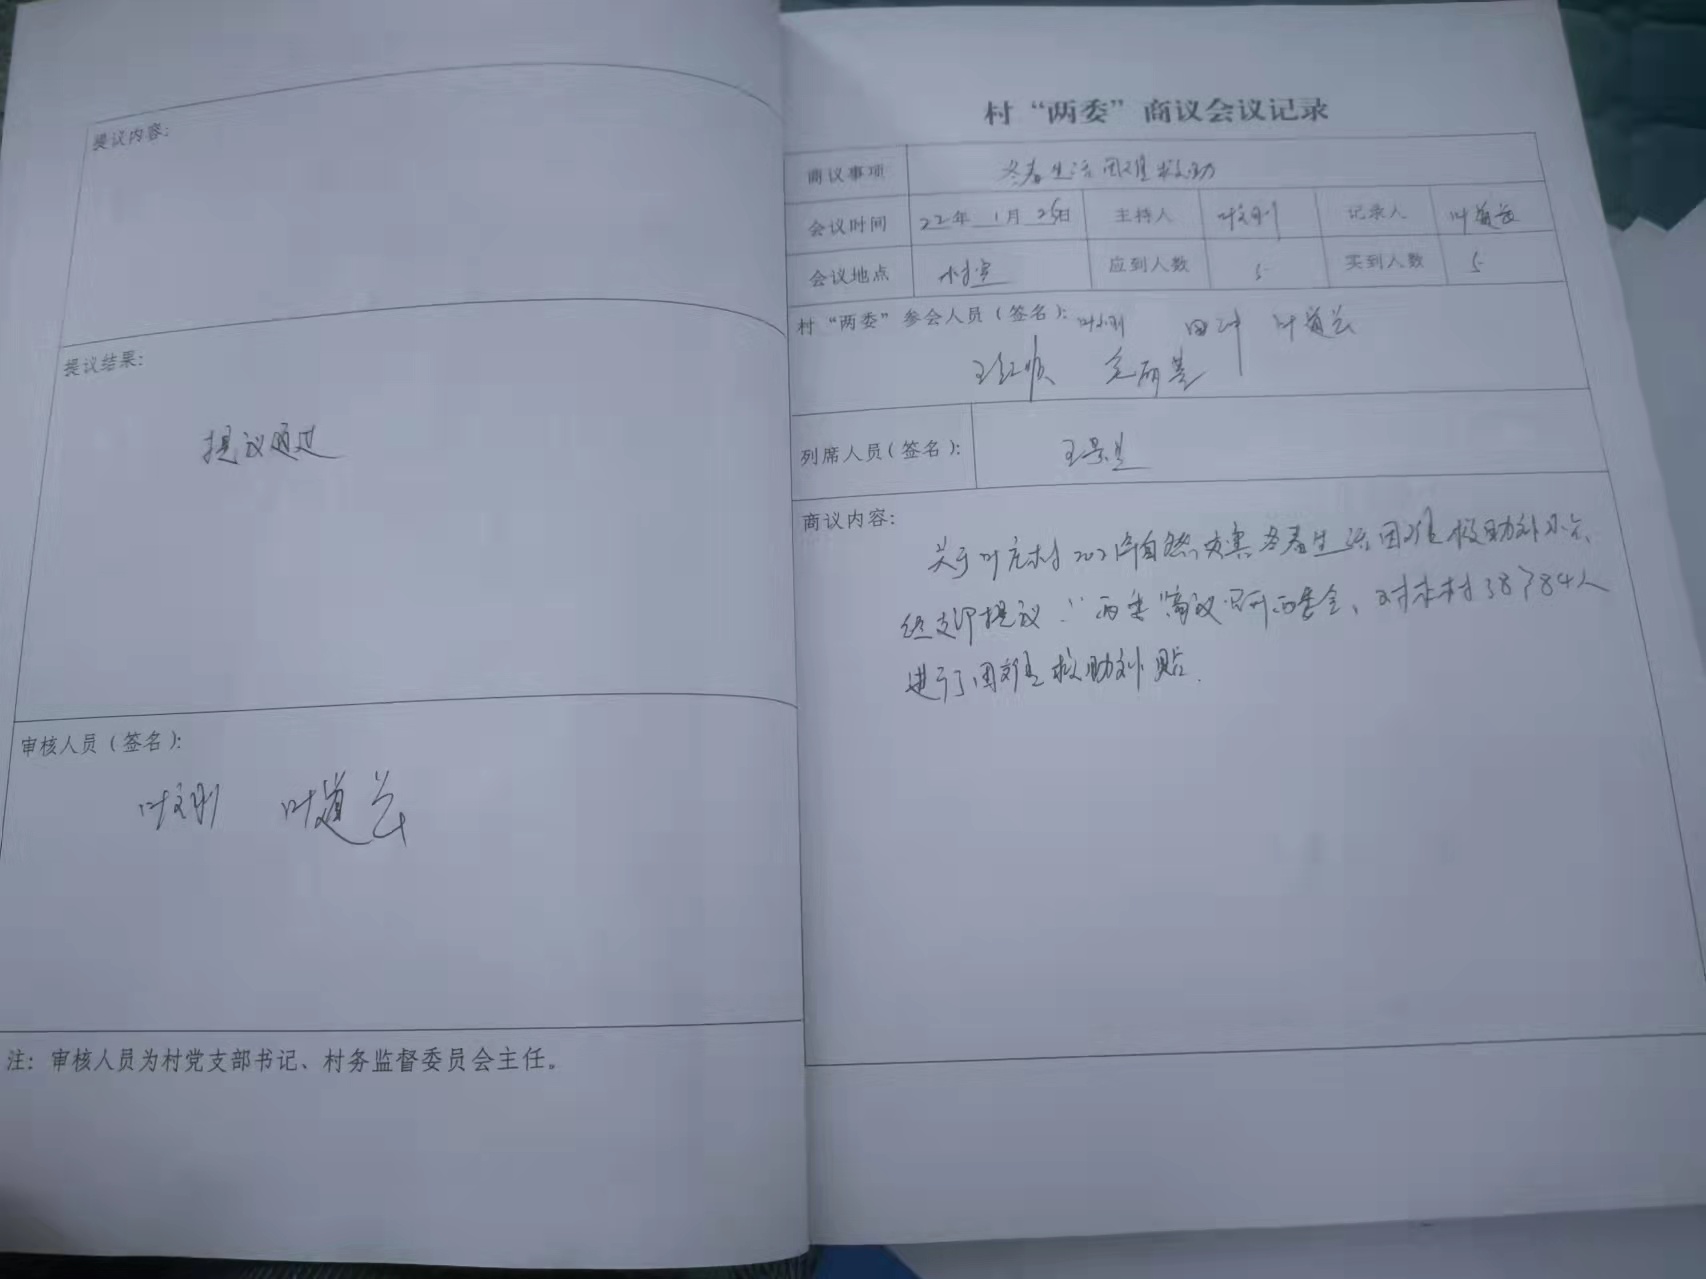 提议内容:
提议结果:
提议通过
审核人员(签名):
叶文刚 叶道云
注: 审核人员为村党支部书记、村务监督委员会主任。
村“两委”商议会议记录
商议事项 冬春生活困难救助
会议时间 22年 1月 25日 主持人 叶文刚 记录人 叶道云
会议地点 村室 应到人数 5 实到人数 5
村“两委”参会人员(签名): 叶文刚 田冲 叶道云
王红顺
列席人员(签名): 王景兰
商议内容:
关于叶庄村2021年自然灾害冬春生活困难救助补
经支部提议,“两委”商议召开两委会、对本村38户84人
进行了困难救助补贴.